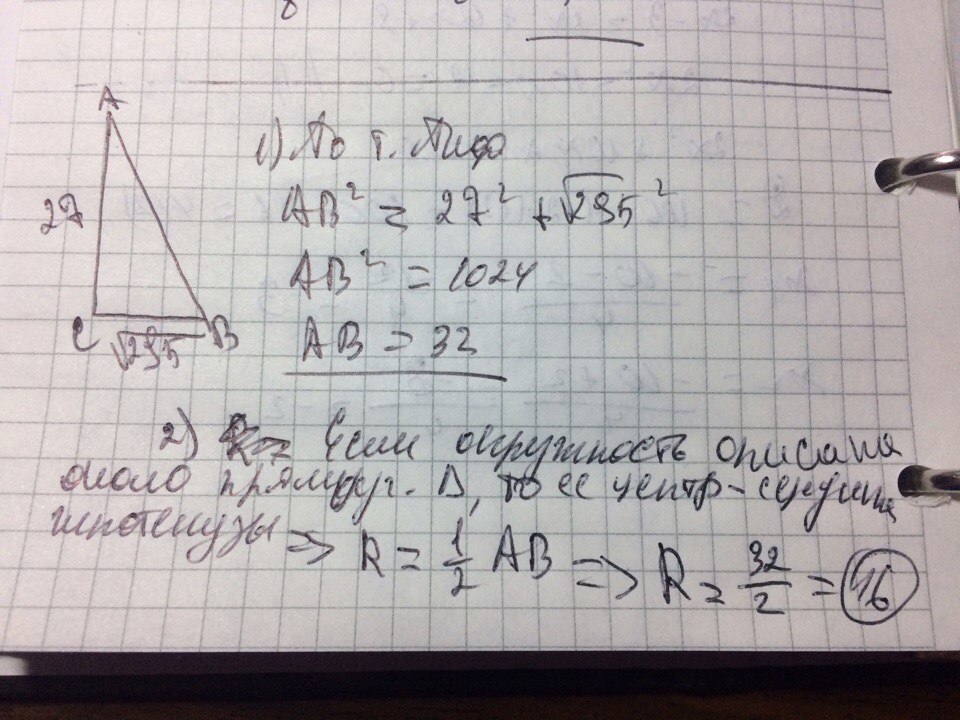 A
27
C
√295
B
1) По т. Пифа
AB² = 27² + √295²
AB² = 1024
AB = 32
2) Если окружность описана
около прямоуг. Δ, то ее центр - середина
гипотенузы ⇒ R = 1/2 AB ⇒ R = 32/2 = 16